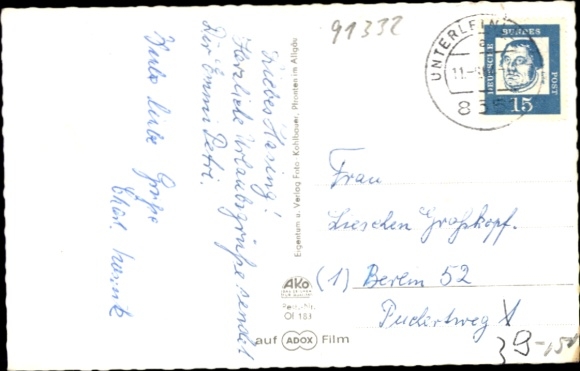 91332
UNTERLEIN
11.-
835
DEUTSCHE BUNDES POST
15
Liebes Hasing!
Herzliche Urlaubsgrüße sendet
Dir Emmi Petri.
liebe Grüße
Eigentum u. Verlag Foto-Kohlbauer, Pfronten im Allgäu
AKo
Best.-Nr.
Of 183
auf ADOX Film
Frau
Lieschen Großkopf.
(1) Berlin 52
Pudertweg
9-